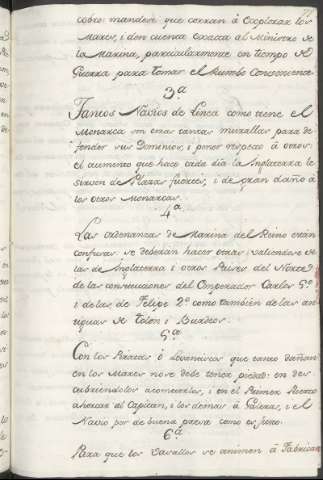 cobre manden que corran à Explorar los
Mares, i den cuenta exacta al Ministro de
la Marina, particularmente en tiempo de
Guerra para tomar el Rumbo Conveniente
3.ª
Tantos Navios de Linea como tiene el
Monarca son otras tantas murallas para de
fender sus Dominios, i poner respecto à otros:
el aumento que hace cada dia la Inglaterra le
sirven de Plazas fuertes, i de gran daño à
los otros Monarcas.
4.ª
Las ordenanzas de Marina del Reino están
confusas se deberán hacer otras valiendose de
las de Inglaterra i otros Paises del Norte,
de las constituciones del Emperador Carlos 5.º
i de las de Felipe 2.º como tambien de las an
tiguas de Tolón i Burdeos.
5.ª
Con los Piratas ò Levantinos que tanto dañan
en los Mares no se debe tener piedad: en des
cubriendolos acometerles, i en el Primer Puerto
ahorcar al Capitan, i los demas à Galeras, i el
Navio por de buena presa como es justo.
6.ª
Para que los Vasallos se animen à Fabricar